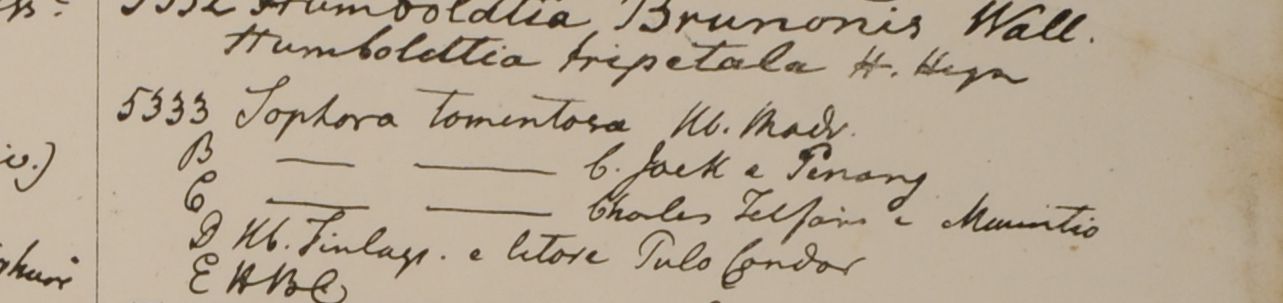 5332 Humboldtia Brunonis Wall.
Humboldtia tripetala H. Heyn
5333 Sophora tomentosa Hb. Madr.
B — — C. Jack e Penang
C — — Charles Telfair e Mauritio
D Hb. Finlays. e litore Pulo Condor
E HBC